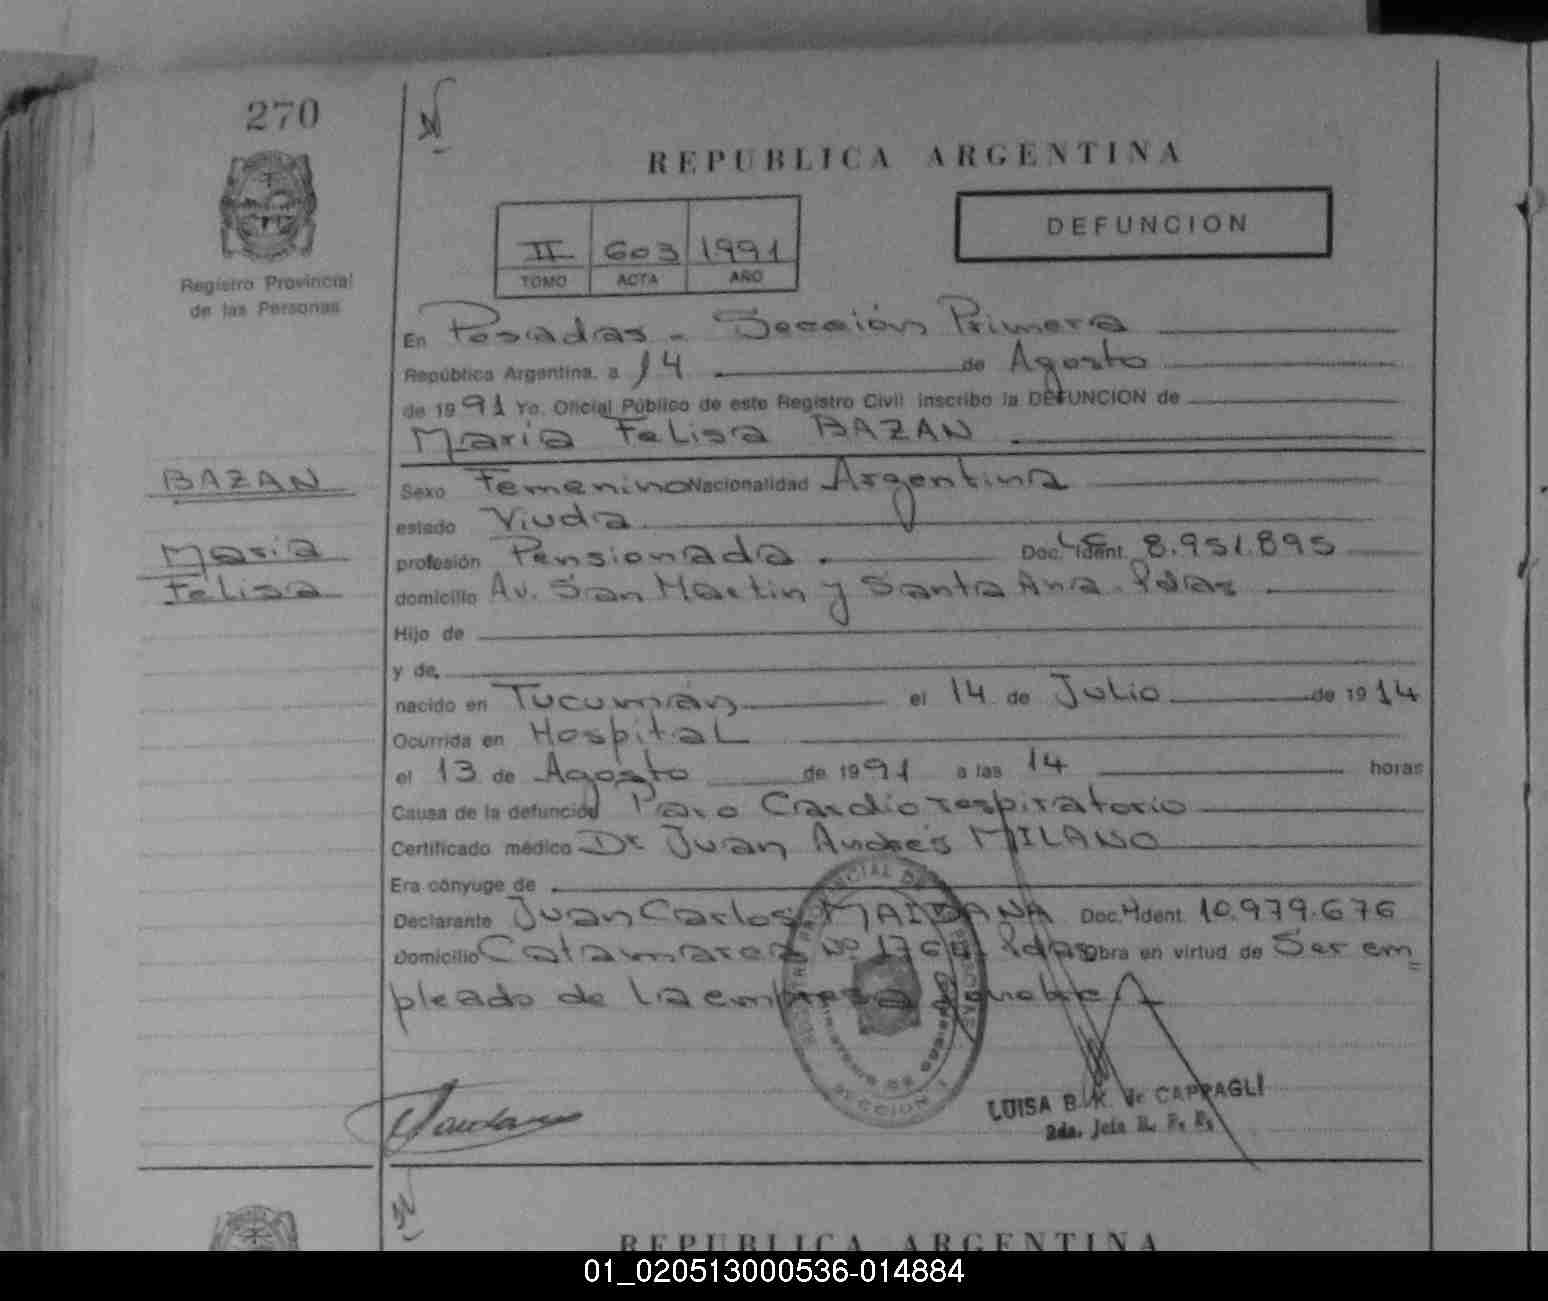 270
REPUBLICA ARGENTINA
Registro Provincial
de las Personas
II 603 1991
TOMO ACTA AÑO
DEFUNCION
En Posadas - Sección Primera
República Argentina, a 14 de Agosto
de 1991 Yo, Oficial Público de este Registro Civil inscribo la DEFUNCION de
María Felisa BAZAN
BAZAN
María
Felisa
Sexo Femenino Nacionalidad Argentina
estado Viuda
profesión Pensionada. Doc. Ident. 8.951.895
domicilio Av. San Martin y Santa Ana. Pdas
Hijo de
y de
nacido en Tucumán el 14 de Julio de 1914
Ocurrida en Hospital
el 13 de Agosto de 1991 a las 14 horas
Causa de la defunción Paro Cardiorespiratorio
Certificado médico Dr Juan Andrés MILANO
Era cónyuge de
Declarante Juan Carlos MAIDANA Doc. Ident. 10.979.676
Domicilio Catamarca No Pdas obra en virtud de Ser em=
pleado de la empresa fúnebre
SECCION I
LUISA B. K. de CAPPAGLI
2da. Jefa R. P. P.
REPUBLICA ARGENTINA
01_020513000536-014884